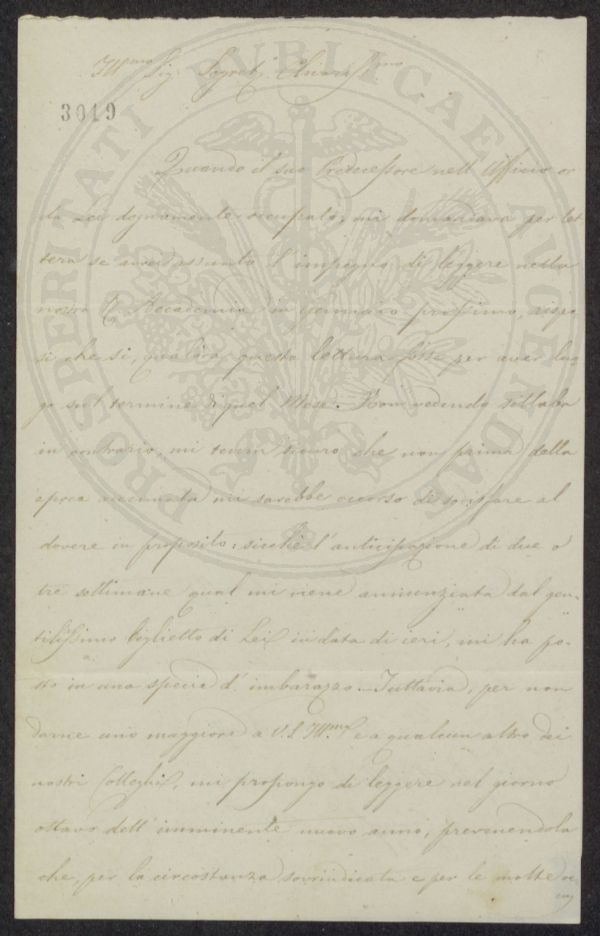 Ill.mo Sig. Segret. Chiariss.mo
3019
PROSPERITATI PUBLICAE AUGENDAE
Quando il suo Predecessore nell'Ufficio or
da Lei degnamente occupato, mi domandava per let
tera se avrei assunto l'impegno di leggere nella
nostra Accademia in Gennaio prossimo, rispo
si che sì, qualora questa lettura fosse per aver luo
go sul termine di quel Mese. Non vedendo sillaba
in contrario, mi tenevo sicuro che non prima della
epoca accennata mi sarebbe occorso di sodisfare al
dovere in proposito: sicchè l'anticipazione di due o
tre settimane qual mi viene annunziata dal gen-
tilissimo biglietto di Lei in data di ieri, mi ha po-
sto in una specie d'imbarazzo. Tuttavia, per non
darne uno maggiore a V.S. Ill.ma e a qualcun altro dei
nostri Colleghi, mi propongo di leggere nel giorno
ottavo dell'imminente nuovo anno, prevenendola
che, per la circostanza sovrindicata e per le molte